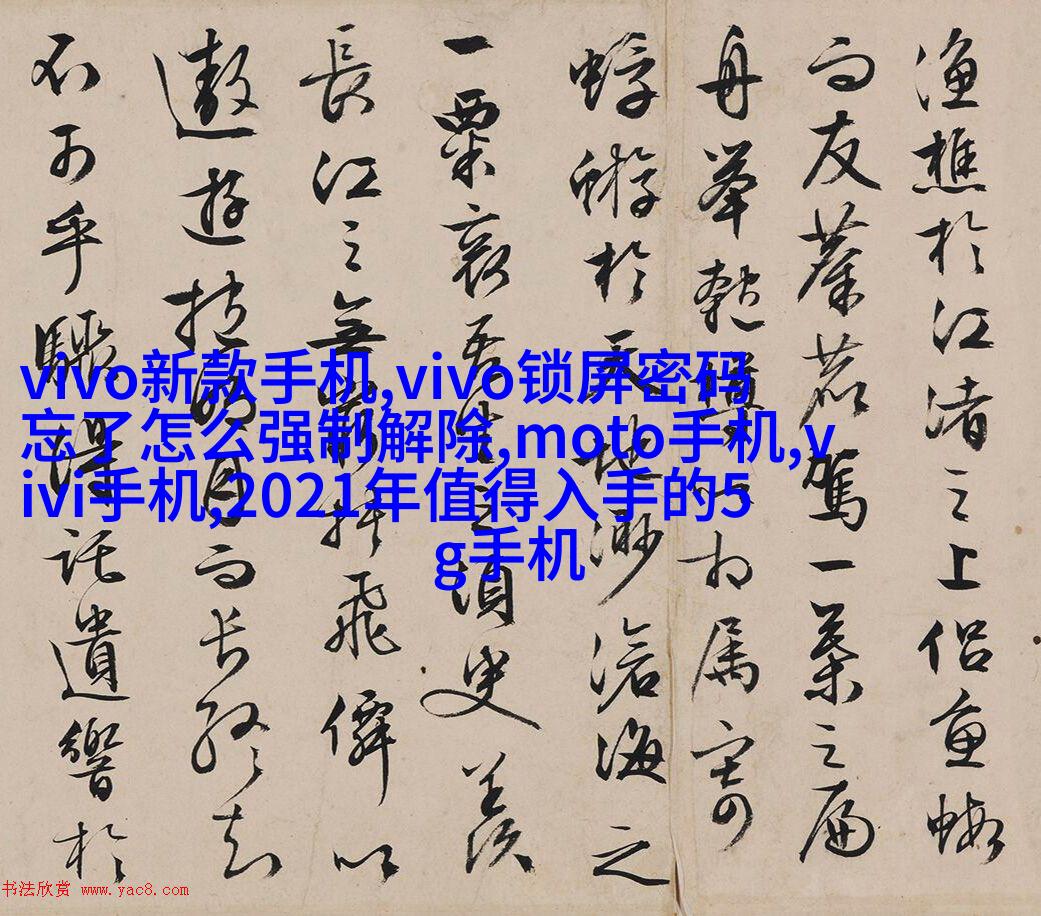 漁樵於江渚之上侣魚蝦
而友麋鹿駕一葉之扁
舟舉匏樽以相属寄
蜉蝣於天地渺滄海之
一粟哀吾生之須臾羡
長江之無窮挟飛僊以
遨遊抱明月而長終知
不可乎驟得託遺響於
vivo新款手机,vivo锁屏密码
忘了怎么强制解除,moto手机,v
ivi手机,2021年值得入手的5
g手机
书法欣赏 www.yac8.com